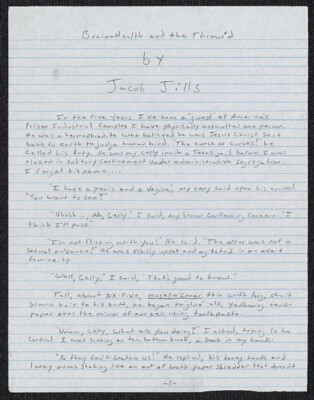 Brain Health and the Throw'd
by
Jacob Jills
In the five years I've been a guest of America's
Prison Industrial Complex I have physically assaulted one person.
He was a hermaphrodite who believed he was Jesus Christ sent
back to earth to judge human kind. The curse or curses! he
called his duty. He was my celly inside a Texas jail before I was
placed in Solitary Confinement under administrative segregation.
I forget his name...
"I have a penis and a vagina", my celly said upon his arrival.
"You want to see?"
"Uhhh..., No, Celly." I said, my brow confessing concern. "I
think I'll pass."
"I'm not flirting with you!" He said. "The offer was not a
sexual advance!" He was visibly upset and agitated in an overt
femininity.
"Well, Celly," I said, "That's good to know."
Tall, about six-five, thin with long, strait
brown hair to his butt, he began to glue old, yellowing news-
paper over the mirror of our cell using toothpaste.
"Umm, Celly, what are you doing?" I asked, trying to be
cordial. I was sitting on the bottom bunk, a book in my hands.
"So they can't watch us!" He replied, his boney hands and
lanky arms shaking like an out of whack paper shredder that doesn't
-1-